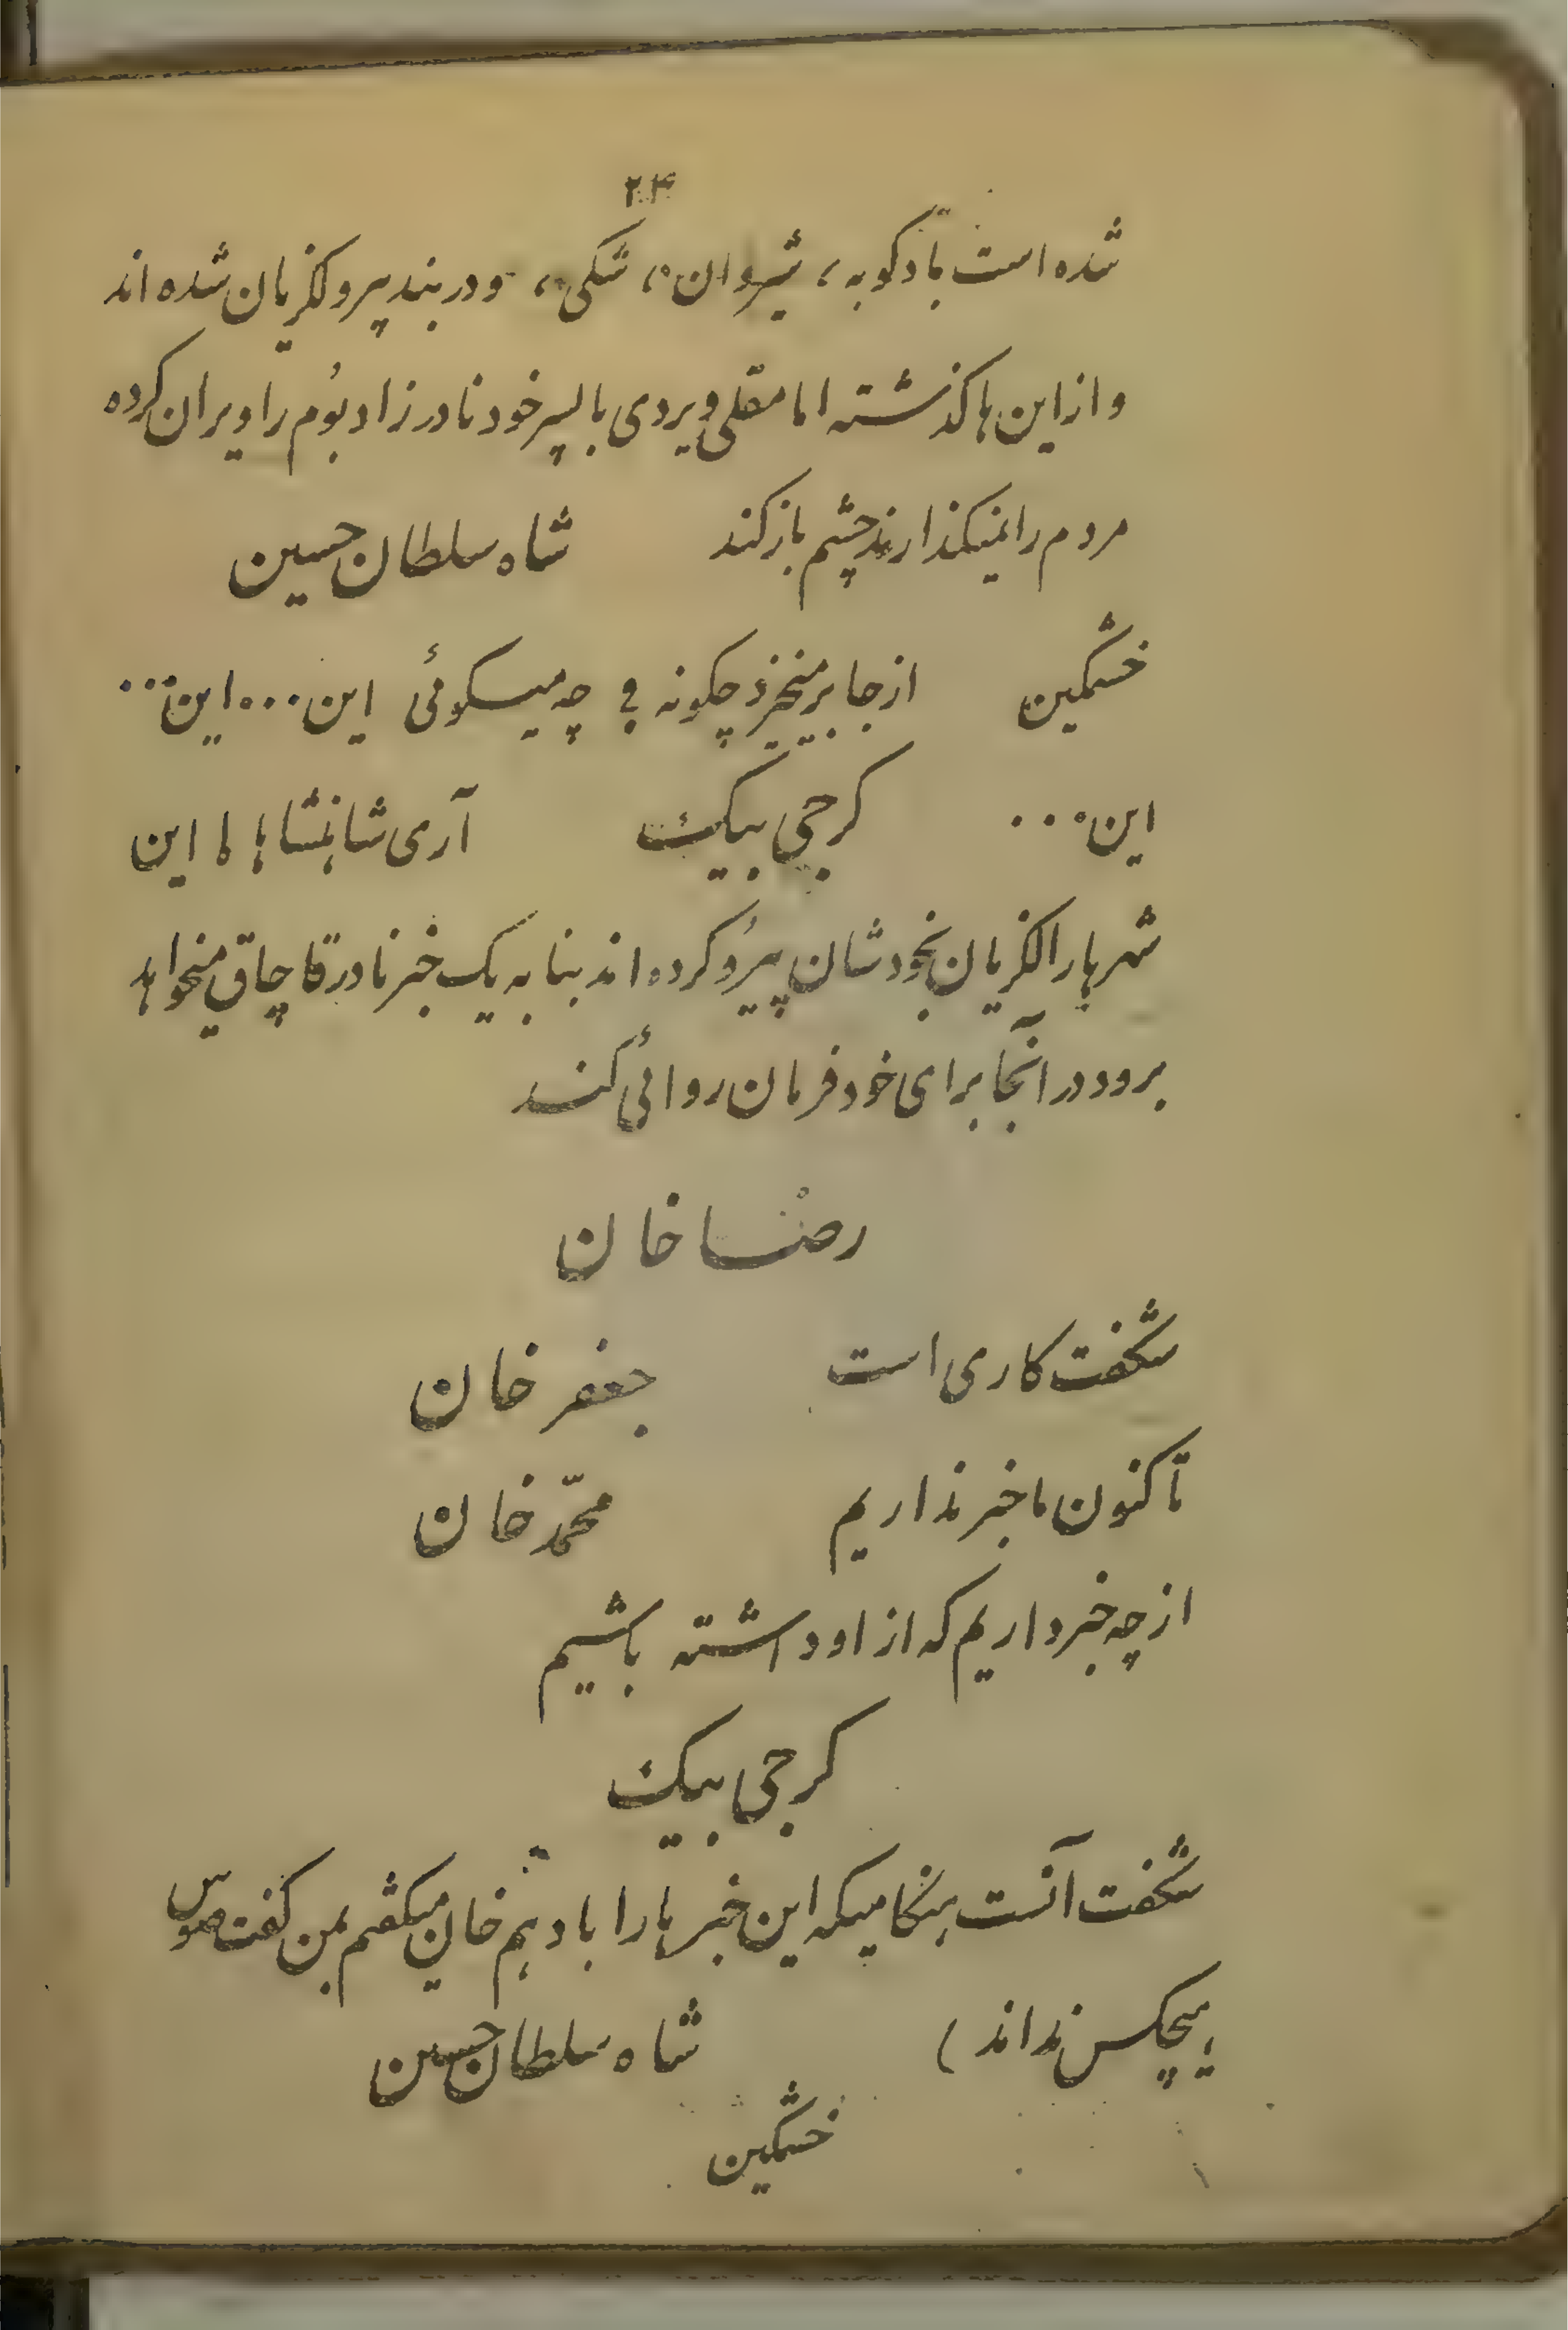 ۲۴
شده است بادکوبه، شیروان، شکی، و دربند پیرو لکزیان شده اند
و از این ها کذشته امامقلی ویردی با پسر خود نادر زاد بُوم را ویران کرده
مردم را نمیکذارند چشم باز کند شاه سلطان حسین
خشمکین از جا بر میخیزد چکونه چه میکوئی این... این...
این... کرجی بیک آری شاهنشاها این
شهرها را لکزیان بخودشان پیرُو کرده اند بنا به یک خبر نادر قاچاق میخواهد
برود در آنجا برای خود فرمان روائی کند
رضا خان
شکفت کاری است جعفر خان
تا کنون ما خبر نداریم محمّد خان
از چه خبر داریم که از او داشته باشیم
کرجی بیک
شکفت آنست هنکامیکه این خبرها را بادهم خان میکفتم بمن کفت
هیچکس نداند) شاه سلطان حسین
خشمکین